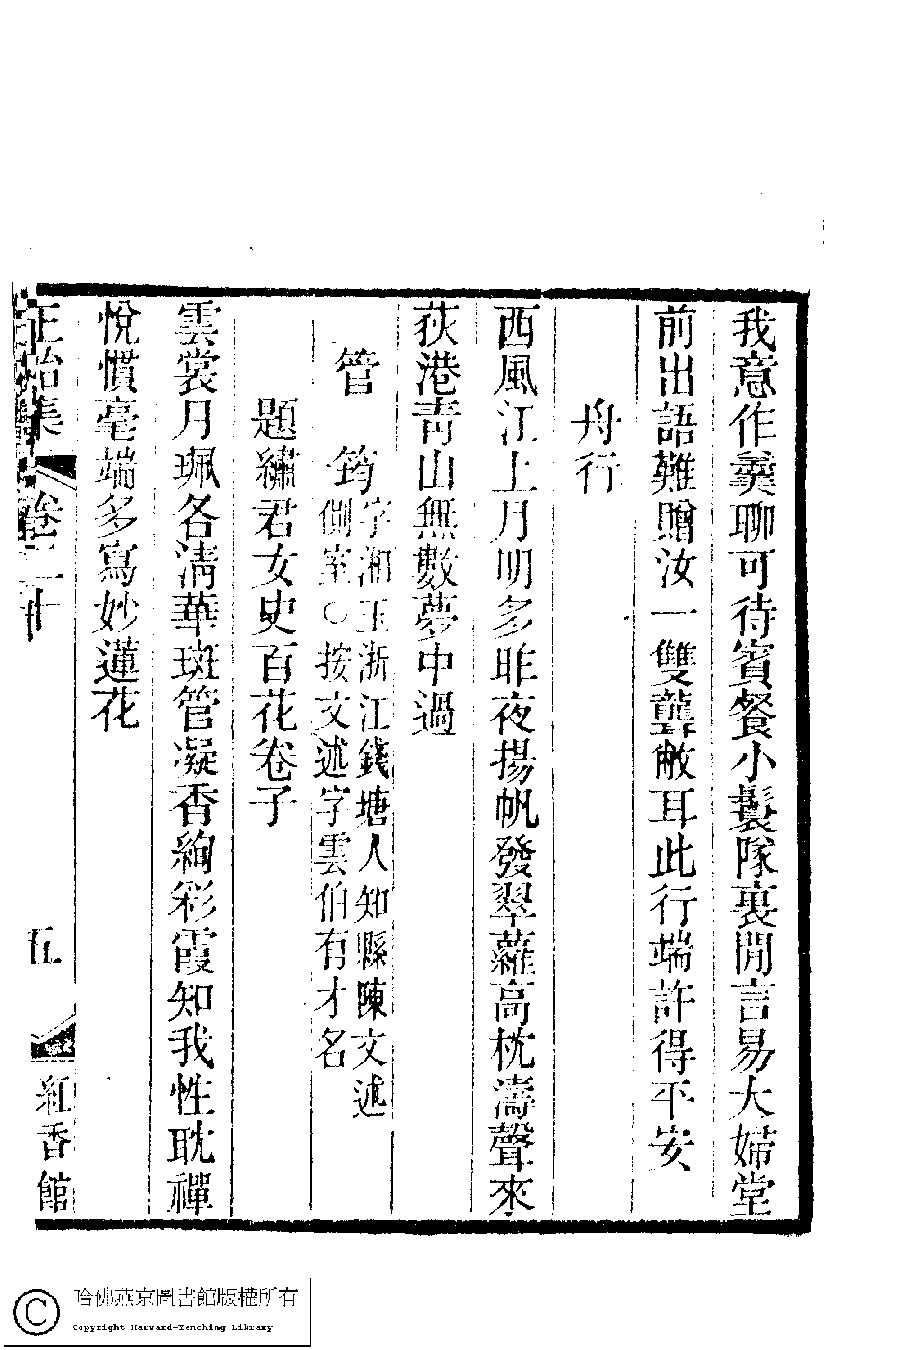 我意作羹聊可待賓餐小鬟隊裏閒言易大婦堂
前出語難贈汝一雙聾敝耳此行端許得平安
舟行
西風江上月明多昨夜揚帆發翠蘿高枕濤聲來
荻港青山無數夢中過
管筠
字湘玉浙江錢塘人知縣陳文述
側室○按文述字雲伯有才名
題繡君女史百花卷子
雲裳月珮各清華斑管凝香絢彩霞知我性耽禪
悅慣毫端多寫妙蓮花
正始集 卷二十 五 紅香館
哈佛燕京圖書館版權所有
Copyright Harvard-Yenching Library